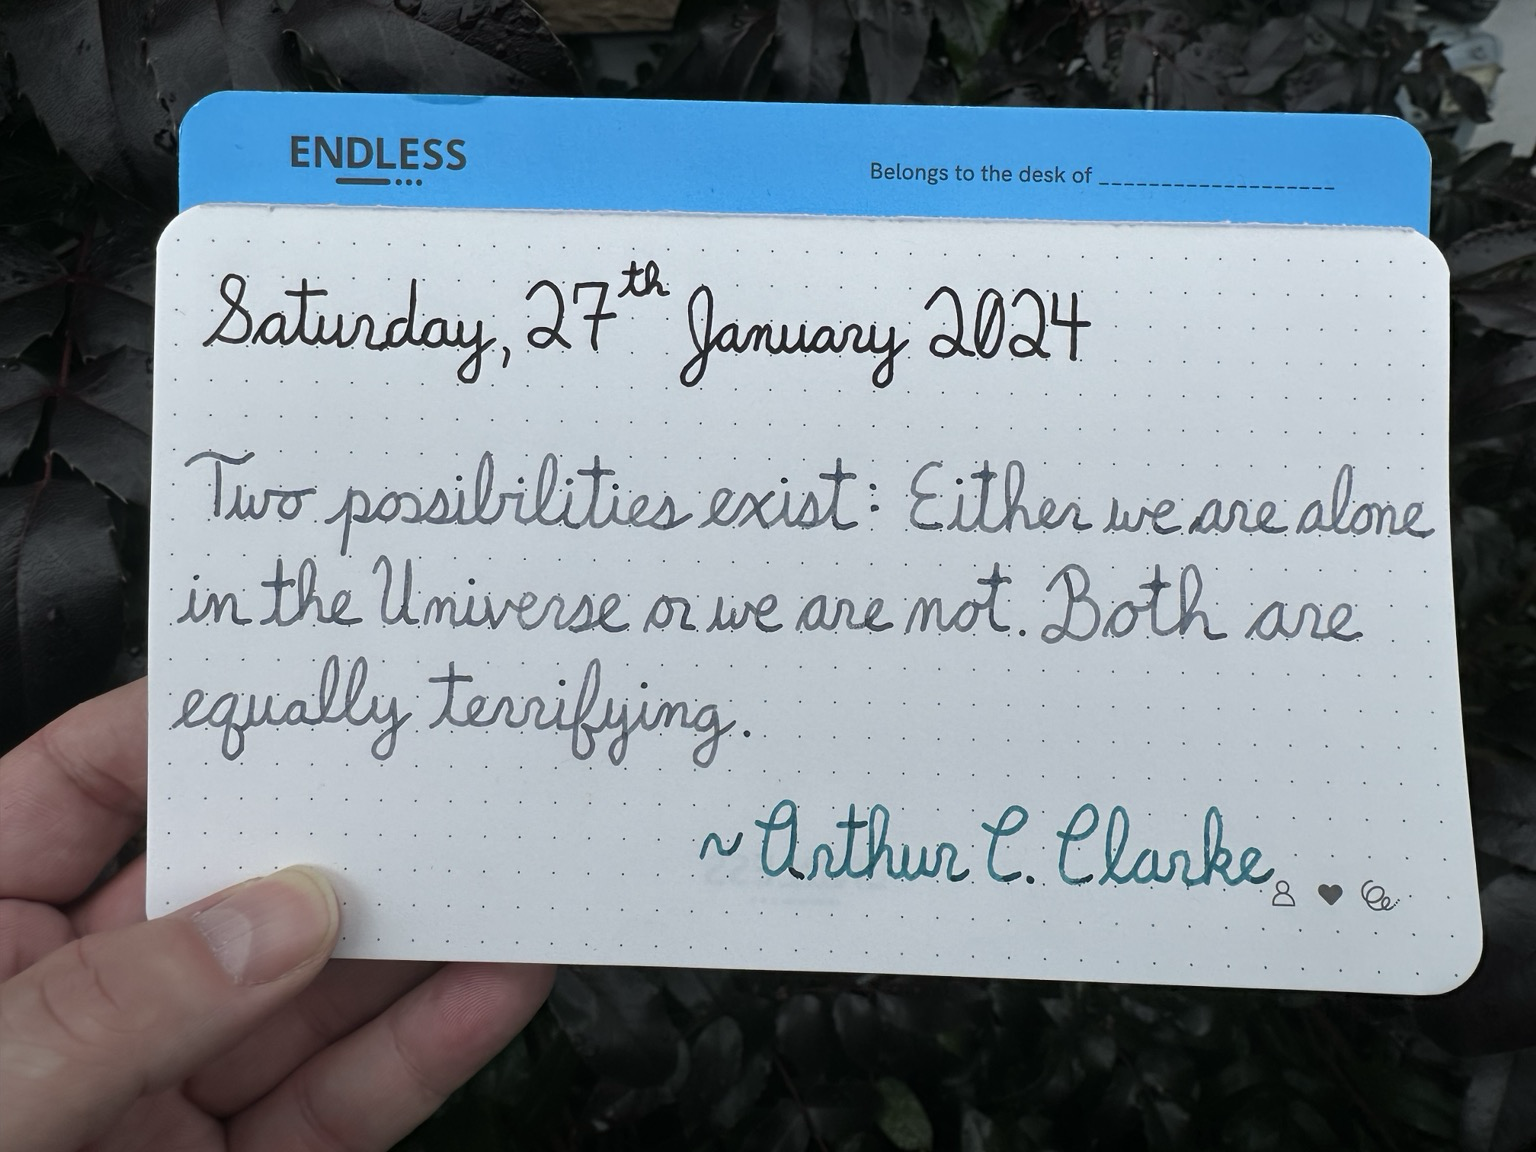 ENDLESS
Belongs to the desk of ____________________
Saturday, 27th January 2024
Two possibilities exist: Either we are alone
in the Universe or we are not. Both are
equally terrifying.
~ Arthur C. Clarke